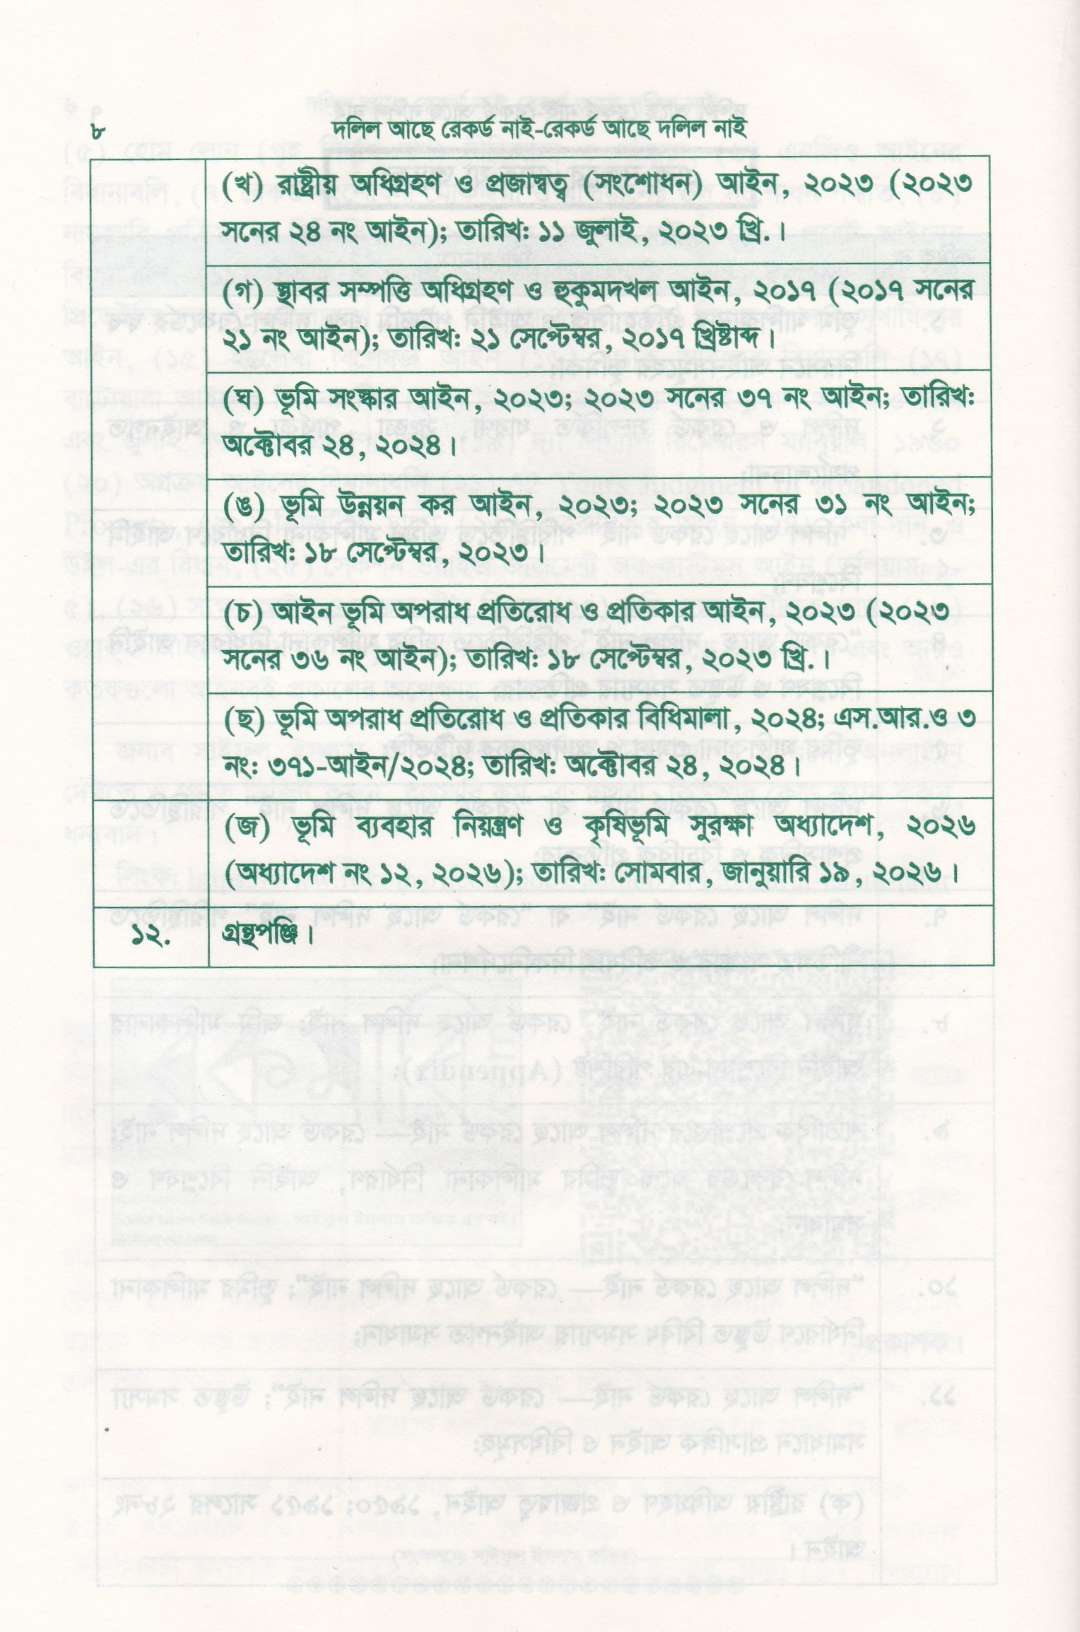 ৮
দলিল আছে রেকর্ড নাই-রেকর্ড আছে দলিল নাই
(খ) রাষ্ট্রীয় অধিগ্রহণ ও প্রজাস্বত্ব (সংশোধন) আইন, ২০২৩ (২০২৩
সনের ২৪ নং আইন); তারিখঃ ১১ জুলাই, ২০২৩ খ্রি.।
(গ) স্থাবর সম্পত্তি অধিগ্রহণ ও হুকুমদখল আইন, ২০১৭ (২০১৭ সনের
২১ নং আইন); তারিখঃ ২১ সেপ্টেম্বর, ২০১৭ খ্রিষ্টাব্দ।
(ঘ) ভূমি সংস্কার আইন, ২০২৩; ২০২৩ সনের ৩৭ নং আইন; তারিখঃ
অক্টোবর ২৪, ২০২৪।
(ঙ) ভূমি উন্নয়ন কর আইন, ২০২৩; ২০২৩ সনের ৩১ নং আইন;
তারিখঃ ১৮ সেপ্টেম্বর, ২০২৩।
(চ) আইন ভূমি অপরাধ প্রতিরোধ ও প্রতিকার আইন, ২০২৩ (২০২৩
সনের ৩৬ নং আইন); তারিখঃ ১৮ সেপ্টেম্বর, ২০২৩ খ্রি.।
(ছ) ভূমি অপরাধ প্রতিরোধ ও প্রতিকার বিধিমালা, ২০২৪; এস.আর.ও ৩
নং: ৩৭১-আইন/২০২৪; তারিখঃ অক্টোবর ২৪, ২০২৪।
(জ) ভূমি ব্যবহার নিয়ন্ত্রণ ও কৃষিভূমি সুরক্ষা অধ্যাদেশ, ২০২৬
(অধ্যাদেশ নং ১২, ২০২৬); তারিখঃ সোমবার, জানুয়ারি ১৯, ২০২৬।
১২. গ্রন্থপঞ্জি।